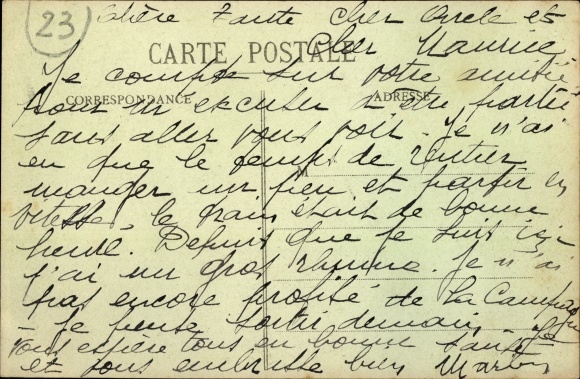 23
Chère Tante Cher Oncle et
Cher Maurice
CARTE POSTALE
Je compte sur votre amitié
CORRESPONDANCE
ADRESSE
pour m'excuser d'être partie
sans aller vous voir. Je n'ai
eu que le temps de rentrer
manger un peu et partir en
vitesse, le train était de bonne
heure. Depuis que je suis ici
j'ai un gros rhume. Je n'ai
pas encore profité de la Campagne
Je pense sortir demain.
Vous espère tous en bonne santé
et vous embrasse bien